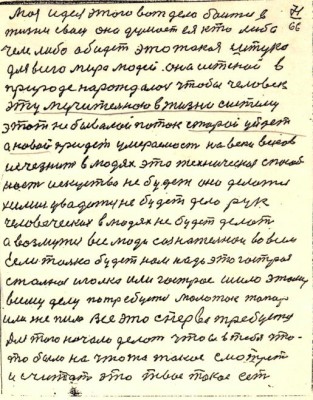 моя идея этого вот дело было в 71
жизни свои она думается кто либо 66
чем либо обидет это такая штука
для всего мира людей. она истеной в
природе нарождалась чтобы человек
эту мучительною в жизни систему
этот не бывалой поток старой уйдет
а новой придет умираемость на веки веков
исчезнит в людях это техническая способ
ность искуство не будет оно делатся
химие уважать не будет дело рук
человеческих в людях не будет делат
а возмутся все люди сознателной во всем
Если толко будет нам надо это гострая
сталная иголка или гострое шило этому
всему делу потребуется молоток топор
или же пила все это сперва требуется
для того начало делат чтоб в тебя что-
то было на что та такое смотрет
и считат это твое такое ест